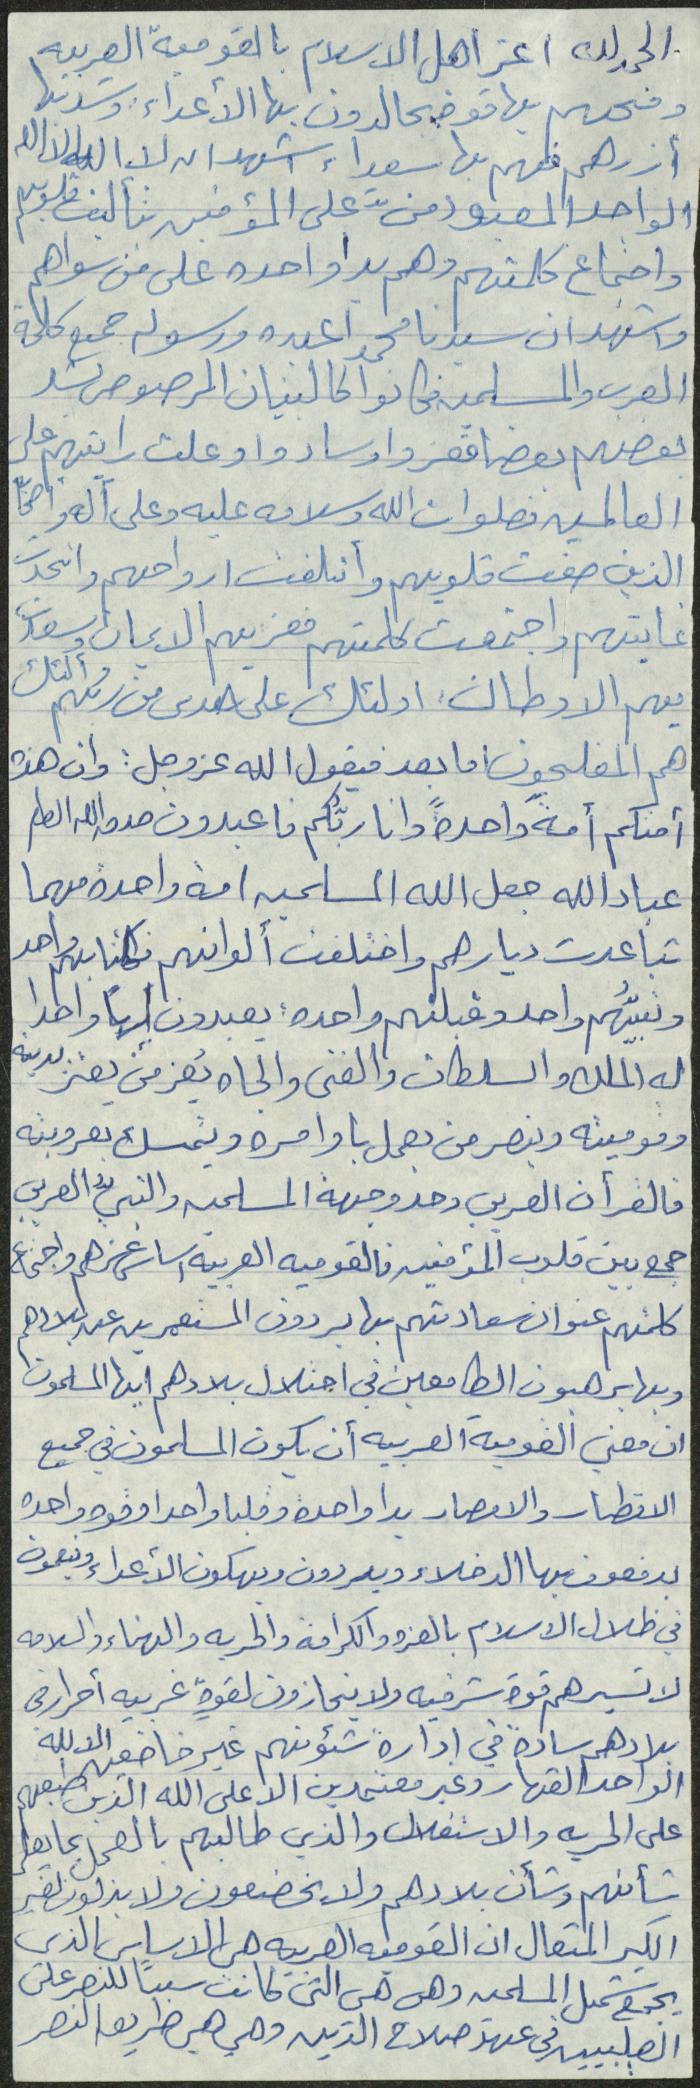 الحمد لله اعز أهل الاسلام بالقوميّة العربيه
ومنحهم بها قوة يجالدون بها الأعداء: وشد بها
أزرهم فهم بها سعداء، اشهد ان لا اله الا الله
الواحد المعبود منّ على المؤمنين بتأليف قلوبهم
واجتماع كلمتهم وهم يدا واحده على من سواهم
واشهد ان سيدنا محمدا عبده ورسوله جمع كلمة
العرب والمسلمين فكانوا كالبنيان المرصوص يشد
بعضهم بعضا فعزوا وسادوا وعلت رايتهم على
العالمين فصلوات الله وسلامه عليه وعلى آله واصحابه
الذين صفت قلوبهم وأتلفت ارواحهم واتحدت
غايتهم واجتمعت كلمتهم فعز بهم الايمان وسعدت
بهم الاوطان: اولئك على هدى من ربهم وأولئك
هم المفلحون اما بعد فيقول الله عز وجل: وان هذه
أمتكم أمةً واحدةً وانا ربُّكم فاعبدون صدق الله العظيم
عباد الله جعل الله المسلمين امة واحدة مهما
تباعدت ديارهم واختلفت ألوانهم فكتابهم واحد
ونبيُّهُم واحد وقبلتهم واحده: يعبدون إلهاً واحدا
له الملك والسلطان والغنى والجاه يُعز من يعتز بدينه
وقوميته وينصر من يعمل باوامره ويتمسك بعروبته
فالقرأن العربي وحد وجهة المسلمين والنبيُّ العربي
جمع بين قلوب المؤمنين فالقوميه العربية اساس عزهم واجتماع
كلمتهم عنوان سعادتهم بها يردون المستعمرين عن بلادهم
وبها يرهبون الطامعين في احتلال بلادهم ايها المسلمون
ان معنى القومية العربيه أن يكون المسلمون في جميع
الاقطار والامصار يدا واحدة وقلبا واحدا وقوه واحده
يدفعون بها الدخلاء ويطردون ويهلكون الأعداء وينعمون
في ظلال الاسلام بالعزه والكرامة والحريه والهناء والسلامه
لا تسيرهم قوة شرقيه ولا ينحازون لقوةٍ غربيه أحرار في
بلادهم سادة في ادارة شئونهم غير خاضعين الا لله
الواحد القهار وغير معتمدين الا على الله الذي طبعهم
على الحريه والاستقلال والذي طالبهم بالعمل بما يعلى
شأنهم وشأن بلادهم ولا يخضعون ولا يذلون لغير
الكبير المتعال ان القوميه العربيه هى الاساس الذى
يجمع شمل المسلمين وهى هى التى كانت سببًا للنصر على
الصليبيين في عهد صلاح الدين وهى هى طريق النصر